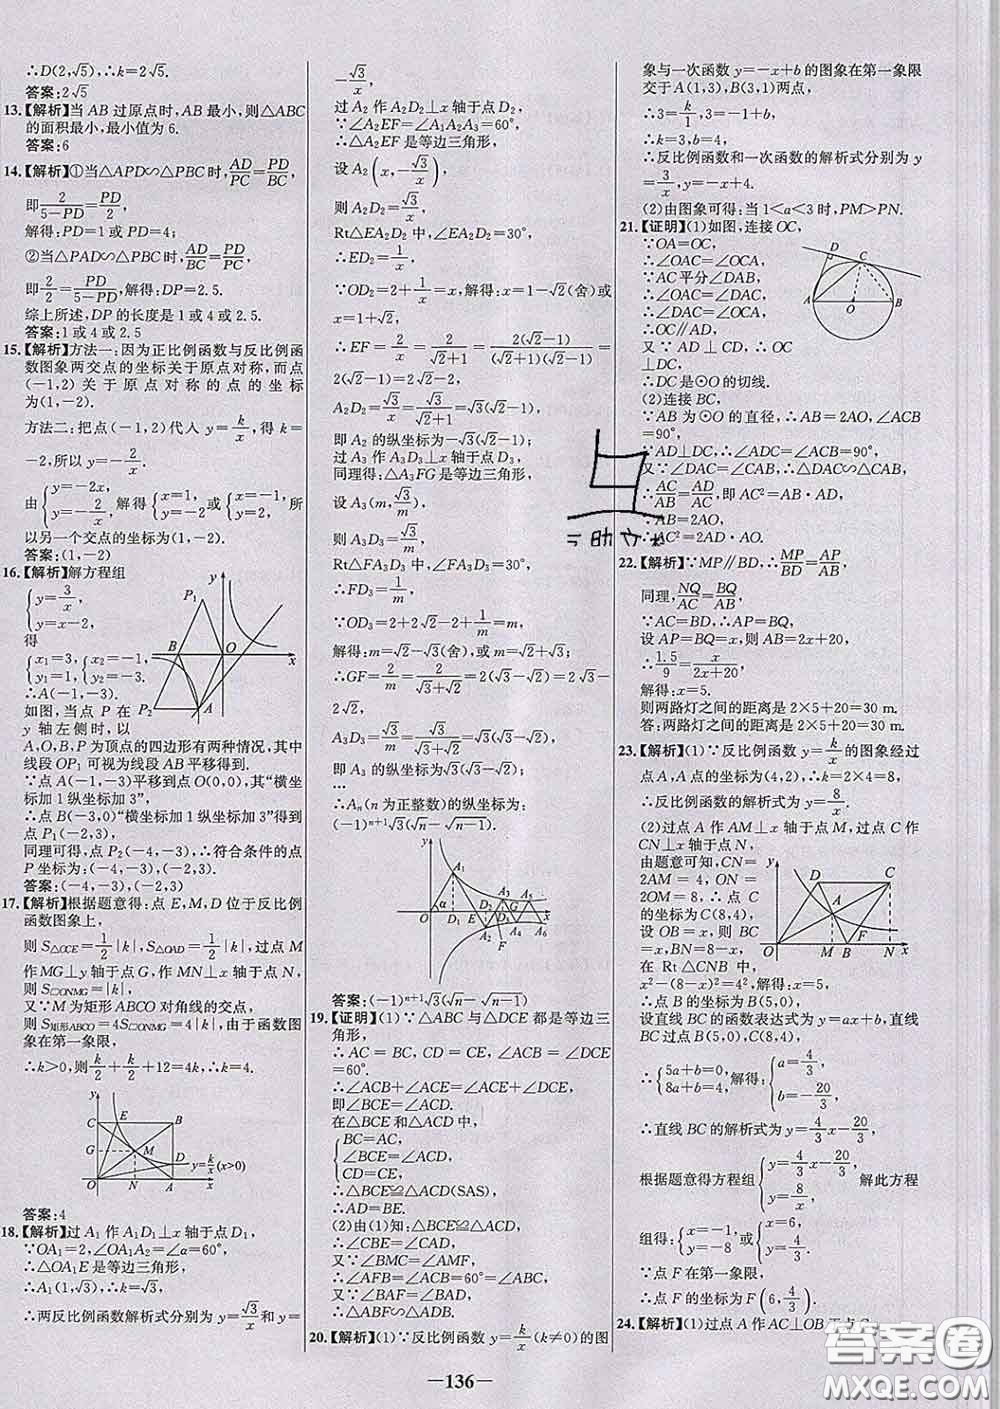 ∴D(2,√5),∴k=2√5.
答案:2√5
13.【解析】当AB过原点时,AB最小,则△ABC
的面积最小,最小值为6.
答案:6
14.【解析】①当△APD∽△PBC时,AD/PC=PD/BC,
即2/(5-PD)=PD/2,
解得:PD=1或PD=4;
②当△PAD∽△PBC时,AD/BC=PD/PC,
即2/2=PD/(5-PD),解得:DP=2.5.
综上所述,DP的长度是1或4或2.5.
答案:1或4或2.5
15.【解析】方法一:因为正比例函数与反比例函
数图象两交点的坐标关于原点对称,而点
(-1,2)关于原点对称的点的坐标
为(1,-2).
方法二:把点(-1,2)代入y=k/x,得k=
-2,所以y=-2/x.
由{y=-2x, y=-2/x,解得{x=1, y=-2或{x=-1, y=2,所
以另一个交点的坐标为(1,-2).
答案:(1,-2)
16.【解析】解方程组
{y=3/x, y=x-2,
得
{x₁=3, y₁=1, {x₂=-1, y₂=-3.
∴A(-1,-3).
如图,当点P在
y轴左侧时,以
A,O,B,P为顶点的四边形有两种情况,其中
线段OP₁可视为线段AB平移得到.
∵点A(-1,-3)平移到点O(0,0),其“横坐
标加1纵坐标加3”,
∴点B(-3,0)“横坐标加1纵坐标加3”得到
点P₁(-2,3).
同理可得,点P₂(-4,-3),∴符合条件的点
P的坐标为:(-4,-3),(-2,3).
答案:(-4,-3),(-2,3)
17.【解析】根据题意得:点E,M,D位于反比例
函数图象上,
则S△OCE=1/2|k|,S△OAD=1/2|k|,过点M
作MG⊥y轴于点G,作MN⊥x轴于点N,
则S▱ONMG=|k|,
又∵M为矩形ABCO对角线的交点,
则S矩形ABCO=4S▱ONMG=4|k|,由于函数图
象在第一象限,
∴k>0,则k/2+k/2+12=4k,∴k=4.
y C E B G M D y=k/x(x>0) O N A x
答案:4
18.【解析】过A₁作A₁D₁⊥x轴于点D₁,
∵OA₁=2,∠OA₁A₂=∠α=60°,
∴△OA₁E是等边三角形,
∴A₁(1,√3),
∴两反比例函数解析式分别为y=√3/x和y=
-√3/x
过A₂作A₂D₂⊥x轴于点D₂,
∵∠A₂EF=∠A₁A₂A₃=60°,
∴△A₂EF是等边三角形,
设A₂(x,-√3/x)
则A₂D₂=√3/x,
Rt△EA₂D₂中,∠EA₂D₂=30°,
∴ED₂=1/x,
∵OD₂=2+1/x=x,解得:x=1-√2(舍)或
x=1+√2,
∴EF=2/x=2/(√2+1)=2(√2-1)/((√2+1)(√2-1))=
2(√2-1)=2√2-2,
A₂D₂=√3/x=√3/(√2+1)=√3(√2-1),
即A₂的纵坐标为-√3(√2-1);
过A₃作A₃D₃⊥x轴于点D₃,
同理得,△A₃FG是等边三角形,
设A₃(m,√3/m)
则A₃D₃=√3/m,
Rt△FA₃D₃中,∠FA₃D₃=30°,
∴FD₃=1/m,
∵OD₃=2+2√2-2+1/m=m,
解得:m=√2-√3(舍),或m=√2+√3;
∴GF=2/m=2/(√3+√2)=2(√3-√2)=2√3-
2√2,
A₃D₃=√3/m=√3/(√3+√2)=√3(√3-√2),
即A₃的纵坐标为√3(√3-√2);
…
∴Aₙ(n为正整数)的纵坐标为:
(-1)ⁿ⁺¹√3(√n-√(n-1)).
y A₁ A₃ A₅ O α D₁ E A₂ F A₄ A₆ x
答案:(-1)ⁿ⁺¹√3(√n-√(n-1))
19.【证明】(1)∵△ABC与△DCE都是等边三
角形,
∴AC=BC,CD=CE,∠ACB=∠DCE
=60°.
∴∠ACB+∠ACE=∠DCE+∠ACE,
即∠BCE=∠ACD.
在△BCE和△ACD中,
{BC=AC, ∠BCE=∠ACD, CD=CE,
∴△BCE≌△ACD(SAS).
∴AD=BE.
(2)由(1)知:△BCE≌△ACD,
∴∠CBE=∠CAD.
又∵∠BMC=∠AMF,
∴∠AFB=∠ACB=60°=∠ABC.
又∵∠BAF=∠BAD,
∴△ABF∽△ADB.
20.【解析】(1)∵反比例函数y=k/x(k≠0)的图
象与一次函数y=-x+b的图象在第一象限
交于A(1,3),B(3,1)两点,
∴3=k/1,3=-1+b,
∴k=3,b=4,
∴反比例函数和一次函数的解析式分别为y
=3/x,y=-x+4.
(2)由图象可得:当1<a<3时,PM>PN.
21.【证明】(1)如图,连接OC,
∵OA=OC,
∴∠OAC=∠OCA.
∵AC平分∠DAB,
∴∠DAC=∠OAC,
∴∠DAC=∠OCA,
∴OC∥AD.
又AD⊥DC,
∴DC⊥OC,
∴DC是⊙O的切线.
(2)连接BC,
∵AB为⊙O的直径,∴AB=2AO,∠ACB
=90°,
∵AD⊥DC,∴∠ADC=∠ACB=90°,
又∵∠DAC=∠CAB,∴△DAC∽△CAB,
∴AC/AB=AD/AC,即AC²=AB·AD,
∵AB=2AO,
∴AC²=2AD·AO.
22.【解析】∵MP∥BD,∴MP/BD=AP/AB,
同理,NQ/AC=BQ/AB,
∵AC=BD,∴AP=BQ,
设AP=BQ=x,则AB=2x+20,
∴1.5/9=x/(2x+20)
解得:x=5.
则两路灯之间的距离为2×5+20=30 m.
答:两路灯之间的距离为2×5+20=30 m.
23.【解析】(1)∵反比例函数y=k/x的图象经过
点A,A点的坐标为(4,2),∴k=2×4=8,
∴反比例函数的解析式为y=8/x.
(2)过点A作AM⊥x轴于点M,过点C作
CN⊥x轴于点N,
由题意可知,CN=
2AM=4,ON=
2OM=8,∴点C的
坐标为C(8,4),设
OB=x,则BC=
x,BN=8-x,
在Rt△CNB中,
x²-(8-x)²=4²,
∴点B的坐标为B(5,0),
设直线BC的函数表达式为y=ax+b,直线
BC过点B(5,0),C(8,4),
∴{5a+b=0, 8a+b=4,解得:{a=4/3, b=-20/3,
∴直线BC的解析式为y=4/3x-20/3,
根据题意得方程组{y=4/3x-20/3, y=8/x,解此方程
组得:{x=-1, y=-8或{x=6, y=4/3.
∵点F在第一象限,
∴点F的坐标为F(6,4/3).
24.【解析】(1)过点A作AC⊥OB于点C,
—136—
答案圈
MXQE.COM